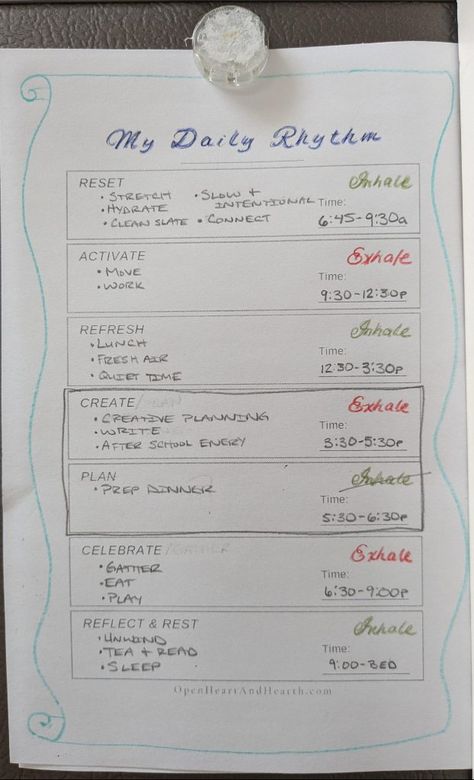 My Daily Rhythm
RESET Inhale
• STRETCH • SLOW +
• HYDRATE INTENTIONAL Time:
• CLEAN SLATE • CONNECT 6:45-9:30a
ACTIVATE Exhale
• MOVE Time:
• WORK 9:30-12:30p
REFRESH Inhale
• LUNCH
• FRESH AIR Time:
• QUIET TIME 12:30-3:30p
CREATE/PLAN Exhale
• CREATIVE PLANNING
• WRITE Time:
• AFTER SCHOOL ENERY 3:30-5:30p
PLAN Inhale
• PREP DINNER
Time:
5:30-6:30p
CELEBRATE/GATHER Exhale
• GATHER
• EAT Time:
• PLAY 6:30-9:00p
REFLECT & REST Inhale
• UNWIND
• TEA + READ Time:
• SLEEP 9:00-BED
OpenHeartAndHearth.com